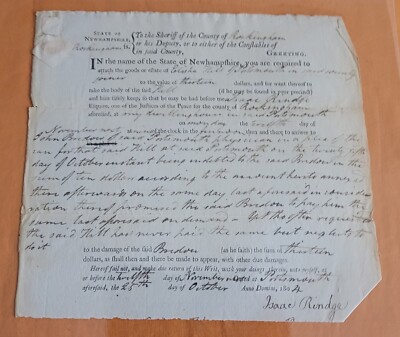 STATE OF
NEWHAMPSHIRE,
Rockingham ss.
To the Sheriff of the County of Rockingham
or his Deputy, or to either of the Constables of
in said County, GREETING.
IN the name of the State of Newhampshire, you are required to
attach the goods or estate of Elisha Hill of Portsmouth in said county
joiner
to the value of thirteen dollars, and for want thereof to
take the body of the said Hill (if he may be found in your precinct)
and him safely keep, so that he may be had before me Isaac Rindge
Esquire, one of the Justices of the Peace for the county of Rockingham
aforesaid, at my dwellinghouse in said Portsmouth
on monday the twelfth day of
November next
then and there, to answer to
John Bredon of said Portsmouth physician in a plea of the
case for that said Hill at said Portsmouth on the twenty fifth
day of October instant being indebted to the said Bredon in the
sum of ten dollars according to the account hereto annexed
then afterwards on the same day last aforesaid in consideration
thereof promised the said Bredon to pay him the
same last aforesaid on demand yet tho often requested
the said Hill has never paid the same but neglects to
do it
to the damage of the said Bredon (as he saith) the sum of thirteen
dollars, as shall then and there be made to appear, with other due damages.
Hereof fail not, and make due return of this Writ, with your doings therein, unto myself, at
or before the twelfth day of November next Dated at Portsmouth
aforesaid, the 25th day of October ANNO DOMINI, 1804
Isaac Rindge